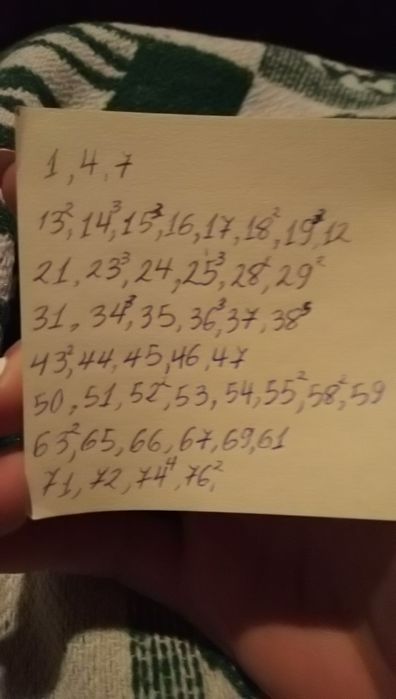 1, 4, 7
13², 14³, 15³, 16, 17, 18², 19³, 12
21, 23³, 24, 25³, 28², 29²
31, 34³, 35, 36³, 37, 38⁵
43², 44, 45, 46, 47
50, 51, 52², 53, 54, 55², 58², 59
63², 65, 66, 67, 69, 61
71, 72, 74⁴, 76²,